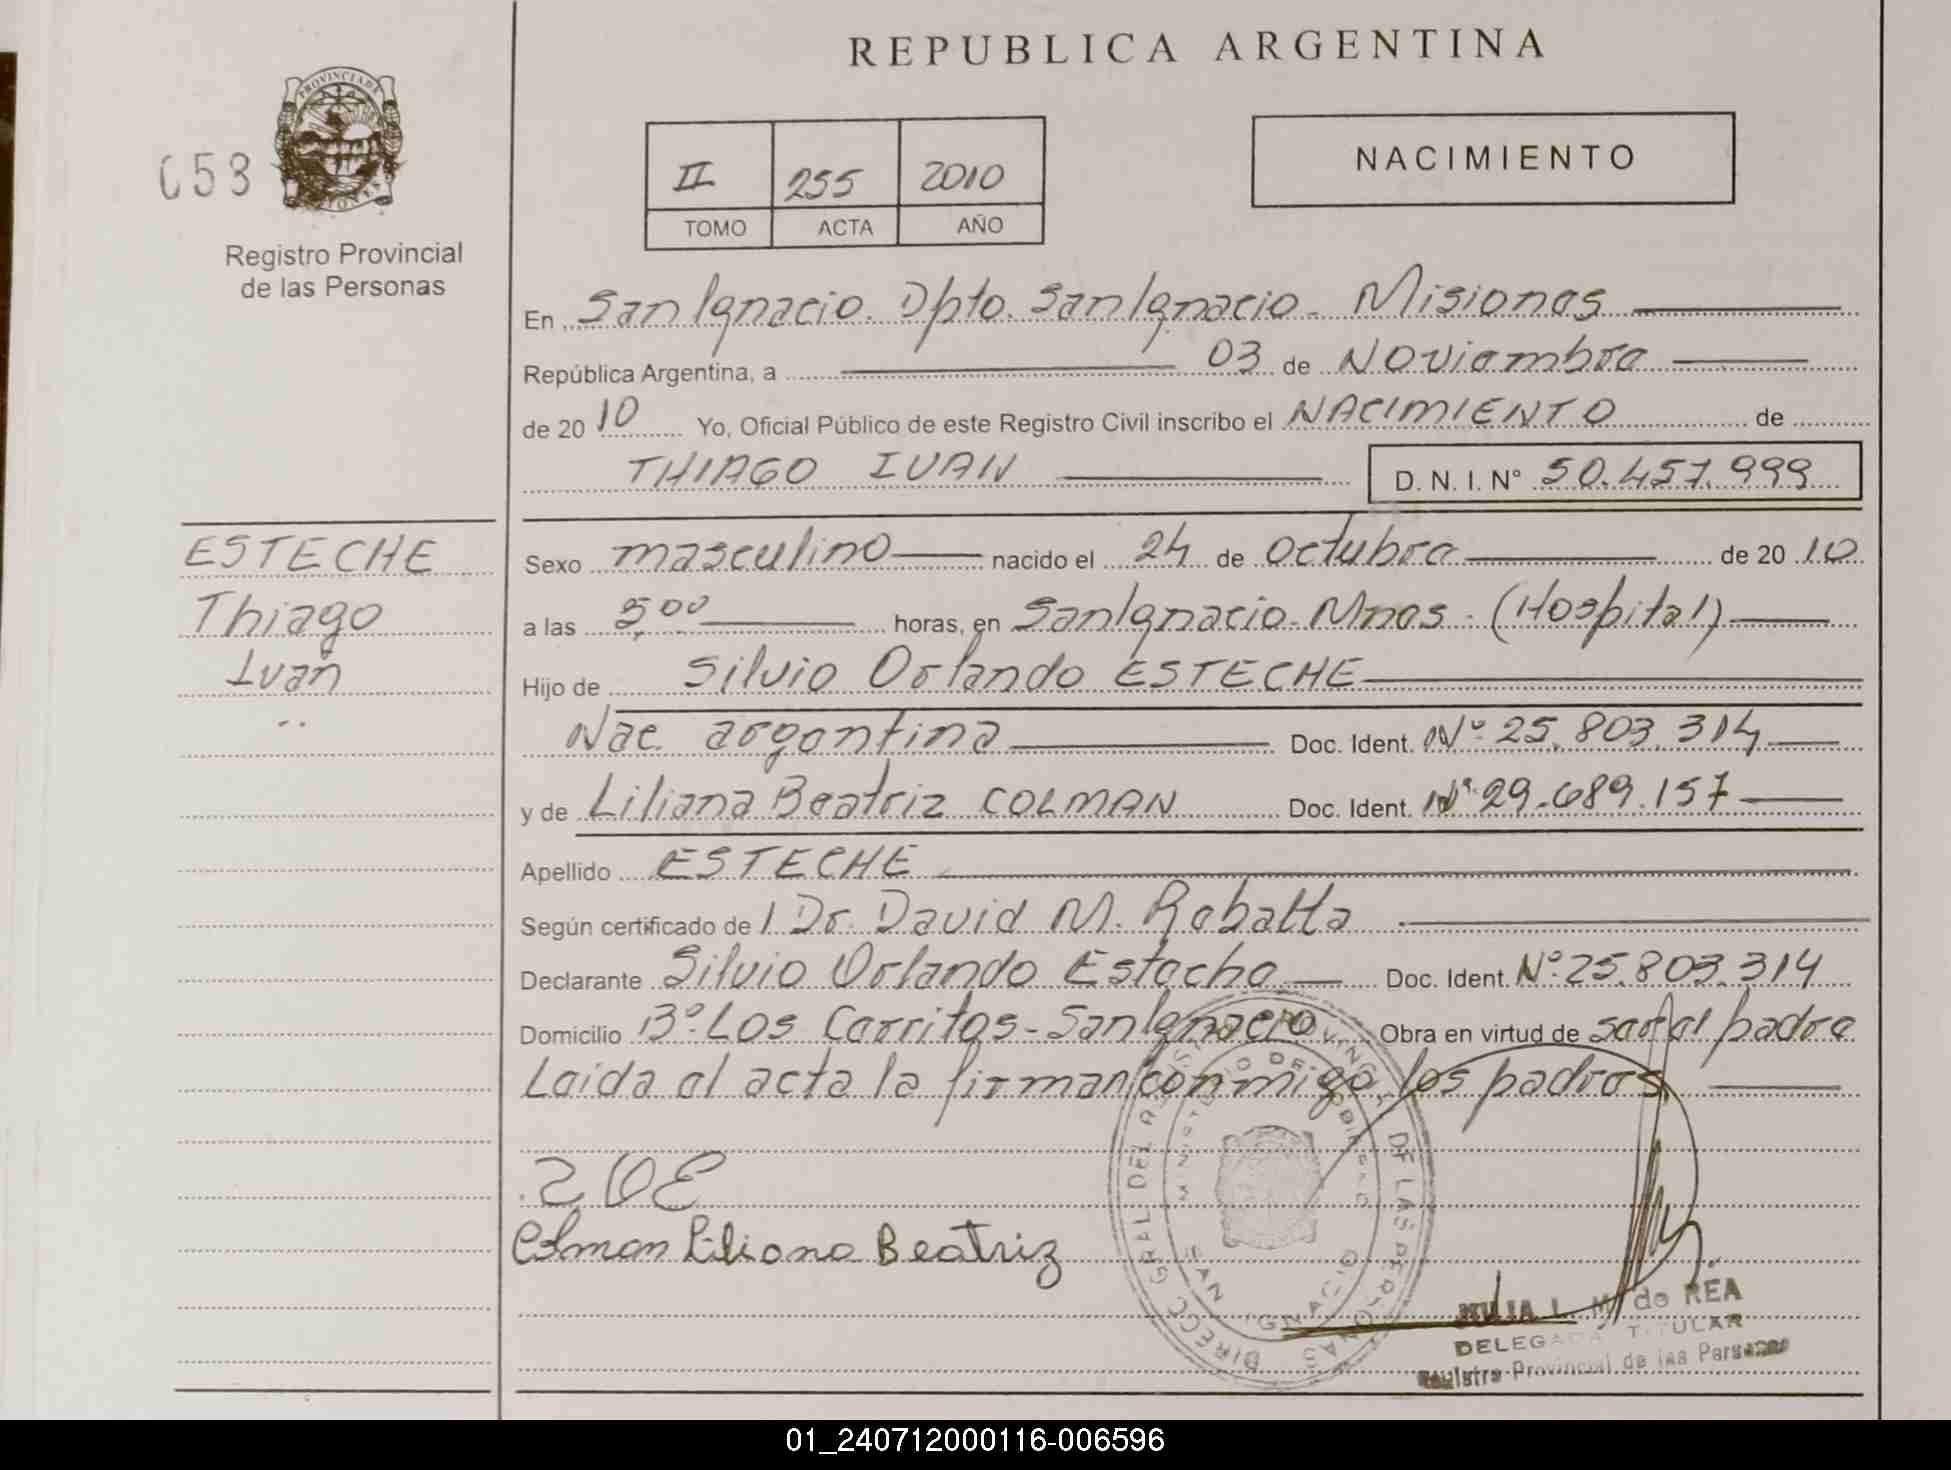 REPUBLICA ARGENTINA
PROVINCIA DE MISIONES
053
Registro Provincial
de las Personas
II 255 2010
TOMO ACTA AÑO
NACIMIENTO
En San Ignacio. Dpto. San Ignacio - Misiones
República Argentina, a 03 de Noviembre
de 2010 Yo, Oficial Público de este Registro Civil inscribo el NACIMIENTO de
THIAGO IVAN D. N. I. N° 50.457.999
ESTECHE
Thiago
Iván
Sexo masculino nacido el 24 de octubre de 2010
a las 5,00 horas, en San Ignacio - Mnes - (Hospital)
Hijo de Silvio Orlando ESTECHE
Nac. argentina Doc. Ident. N° 25.803.314
y de Liliana Beatriz COLMAN Doc. Ident. N° 29.689.157
Apellido ESTECHE
Según certificado de / Dr. David M. Rebatta
Declarante Silvio Orlando Esteche Doc. Ident. N° 25.803.314
Domicilio B° Los Carritos - San Ignacio Obra en virtud de ser el padre
Leída el acta la firman conmigo los padres
Colman Liliana Beatriz
DIRECC GRAL DEL REGISTRO PROVINCIAL DE LAS PERSONAS
MINISTERIO DE GOBIERNO
SAN IGNACIO
JULIA L. M. de REA
DELEGADA TITULAR
Registro Provincial de las Personas
01_240712000116-006596